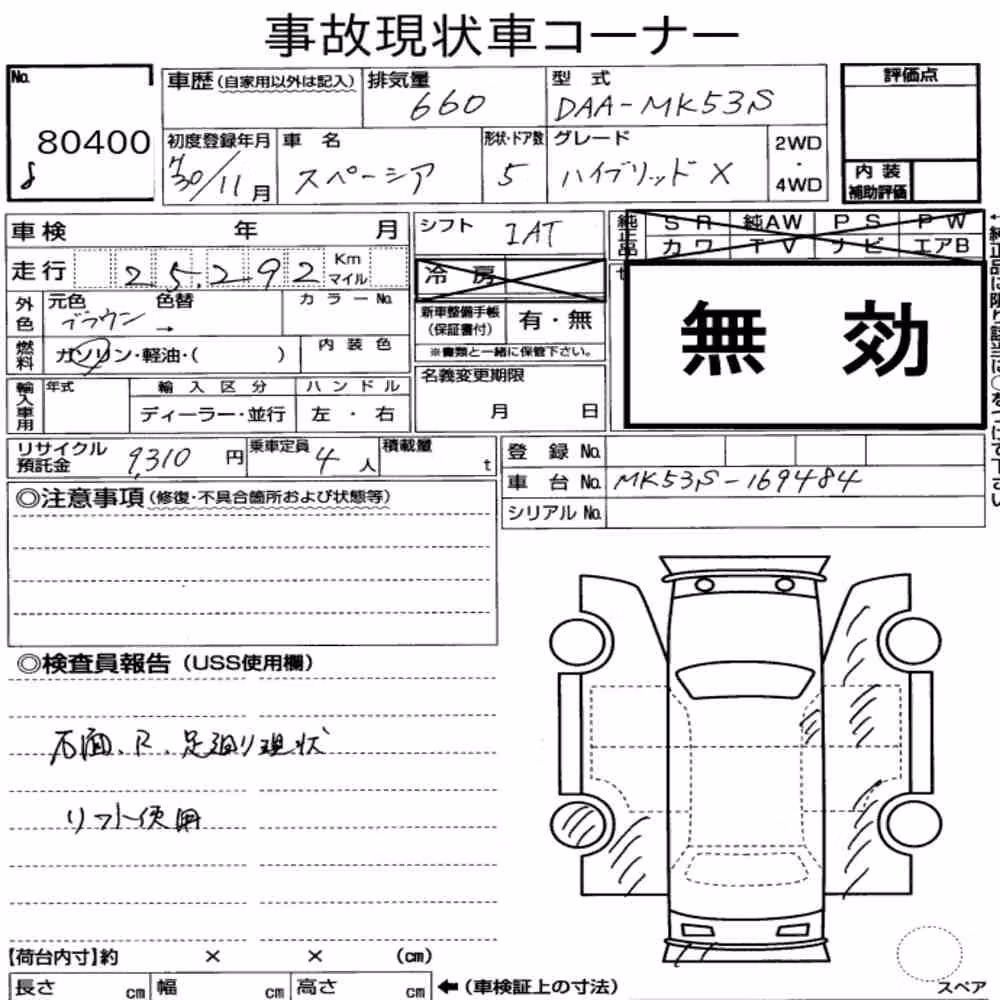 事故現状車コーナー
No. 80400
8
車歴(自家用以外は記入) 排気量 660 型式 DAA-MK53S
評価点
初度登録年月 H30/11月 車名 スペーシア 形状・ドア数 5 グレード ハイブリッド X 2WD・4WD
内装補助評価
車検 年 月 シフト IAT
純正品 SR 純AW PS PW
カワ TV ナビ エアB
走行 25,292 Km マイル
冷房
外色 元色 ブラウン → 色替 カラーNo.
新車整備手帳(保証書付) 有・無
※書類と一緒に保管下さい。
無効
燃料 ガソリン・軽油・( ) 内装色
輸入車用 年式 輸入区分 ディーラー・並行 ハンドル 左・右
名義変更期限 月 日
リサイクル預託金 9,310円 乗車定員 4人 積載量 t
登録No.
車台No. MK53S-169484
シリアルNo.
◎注意事項(修復・不具合箇所および状態等)
◎検査員報告(USS使用欄)
右面、R、足廻り現状
リフト使用
【荷台内寸】約 × × (cm)
長さ cm 幅 cm 高さ cm ←(車検証上の寸法)
スペア